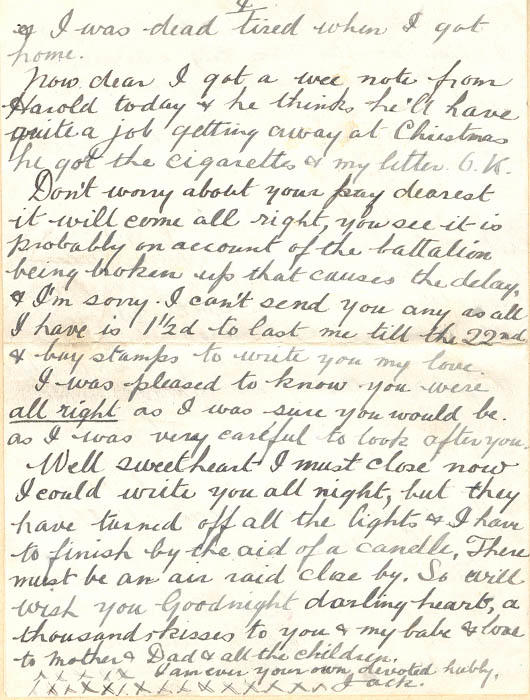 4
& I was dead tired when I got
home.
Now dear I got a wee note from
Harold today & he thinks he'll have
quite a job getting away at Christmas
he got the cigarettes & my letter. O.K.
Don't worry about your pay dearest
it will come all right, you see it is
probably on account of the battalion
being broken up that causes the delay,
& I'm sorry I can't send you any as all
I have is 1½d to last me till the 22nd
& buy stamps to write you my love.
I was pleased to know you were
all right as I was sure you would be.
as I was very careful to look after you.
Well sweetheart I must close now
I could write you all night, but they
have turned off all the lights & I have
to finish by the aid of a candle, There
must be an air raid close by. So will
wish you Goodnight darling heart, a
thousand kisses to you & my babe & love
to mother & Dad & all the children.
I am ever your own devoted hubby,
x x x x x x x Jack.
x x x x x x x x x x x x x x x x